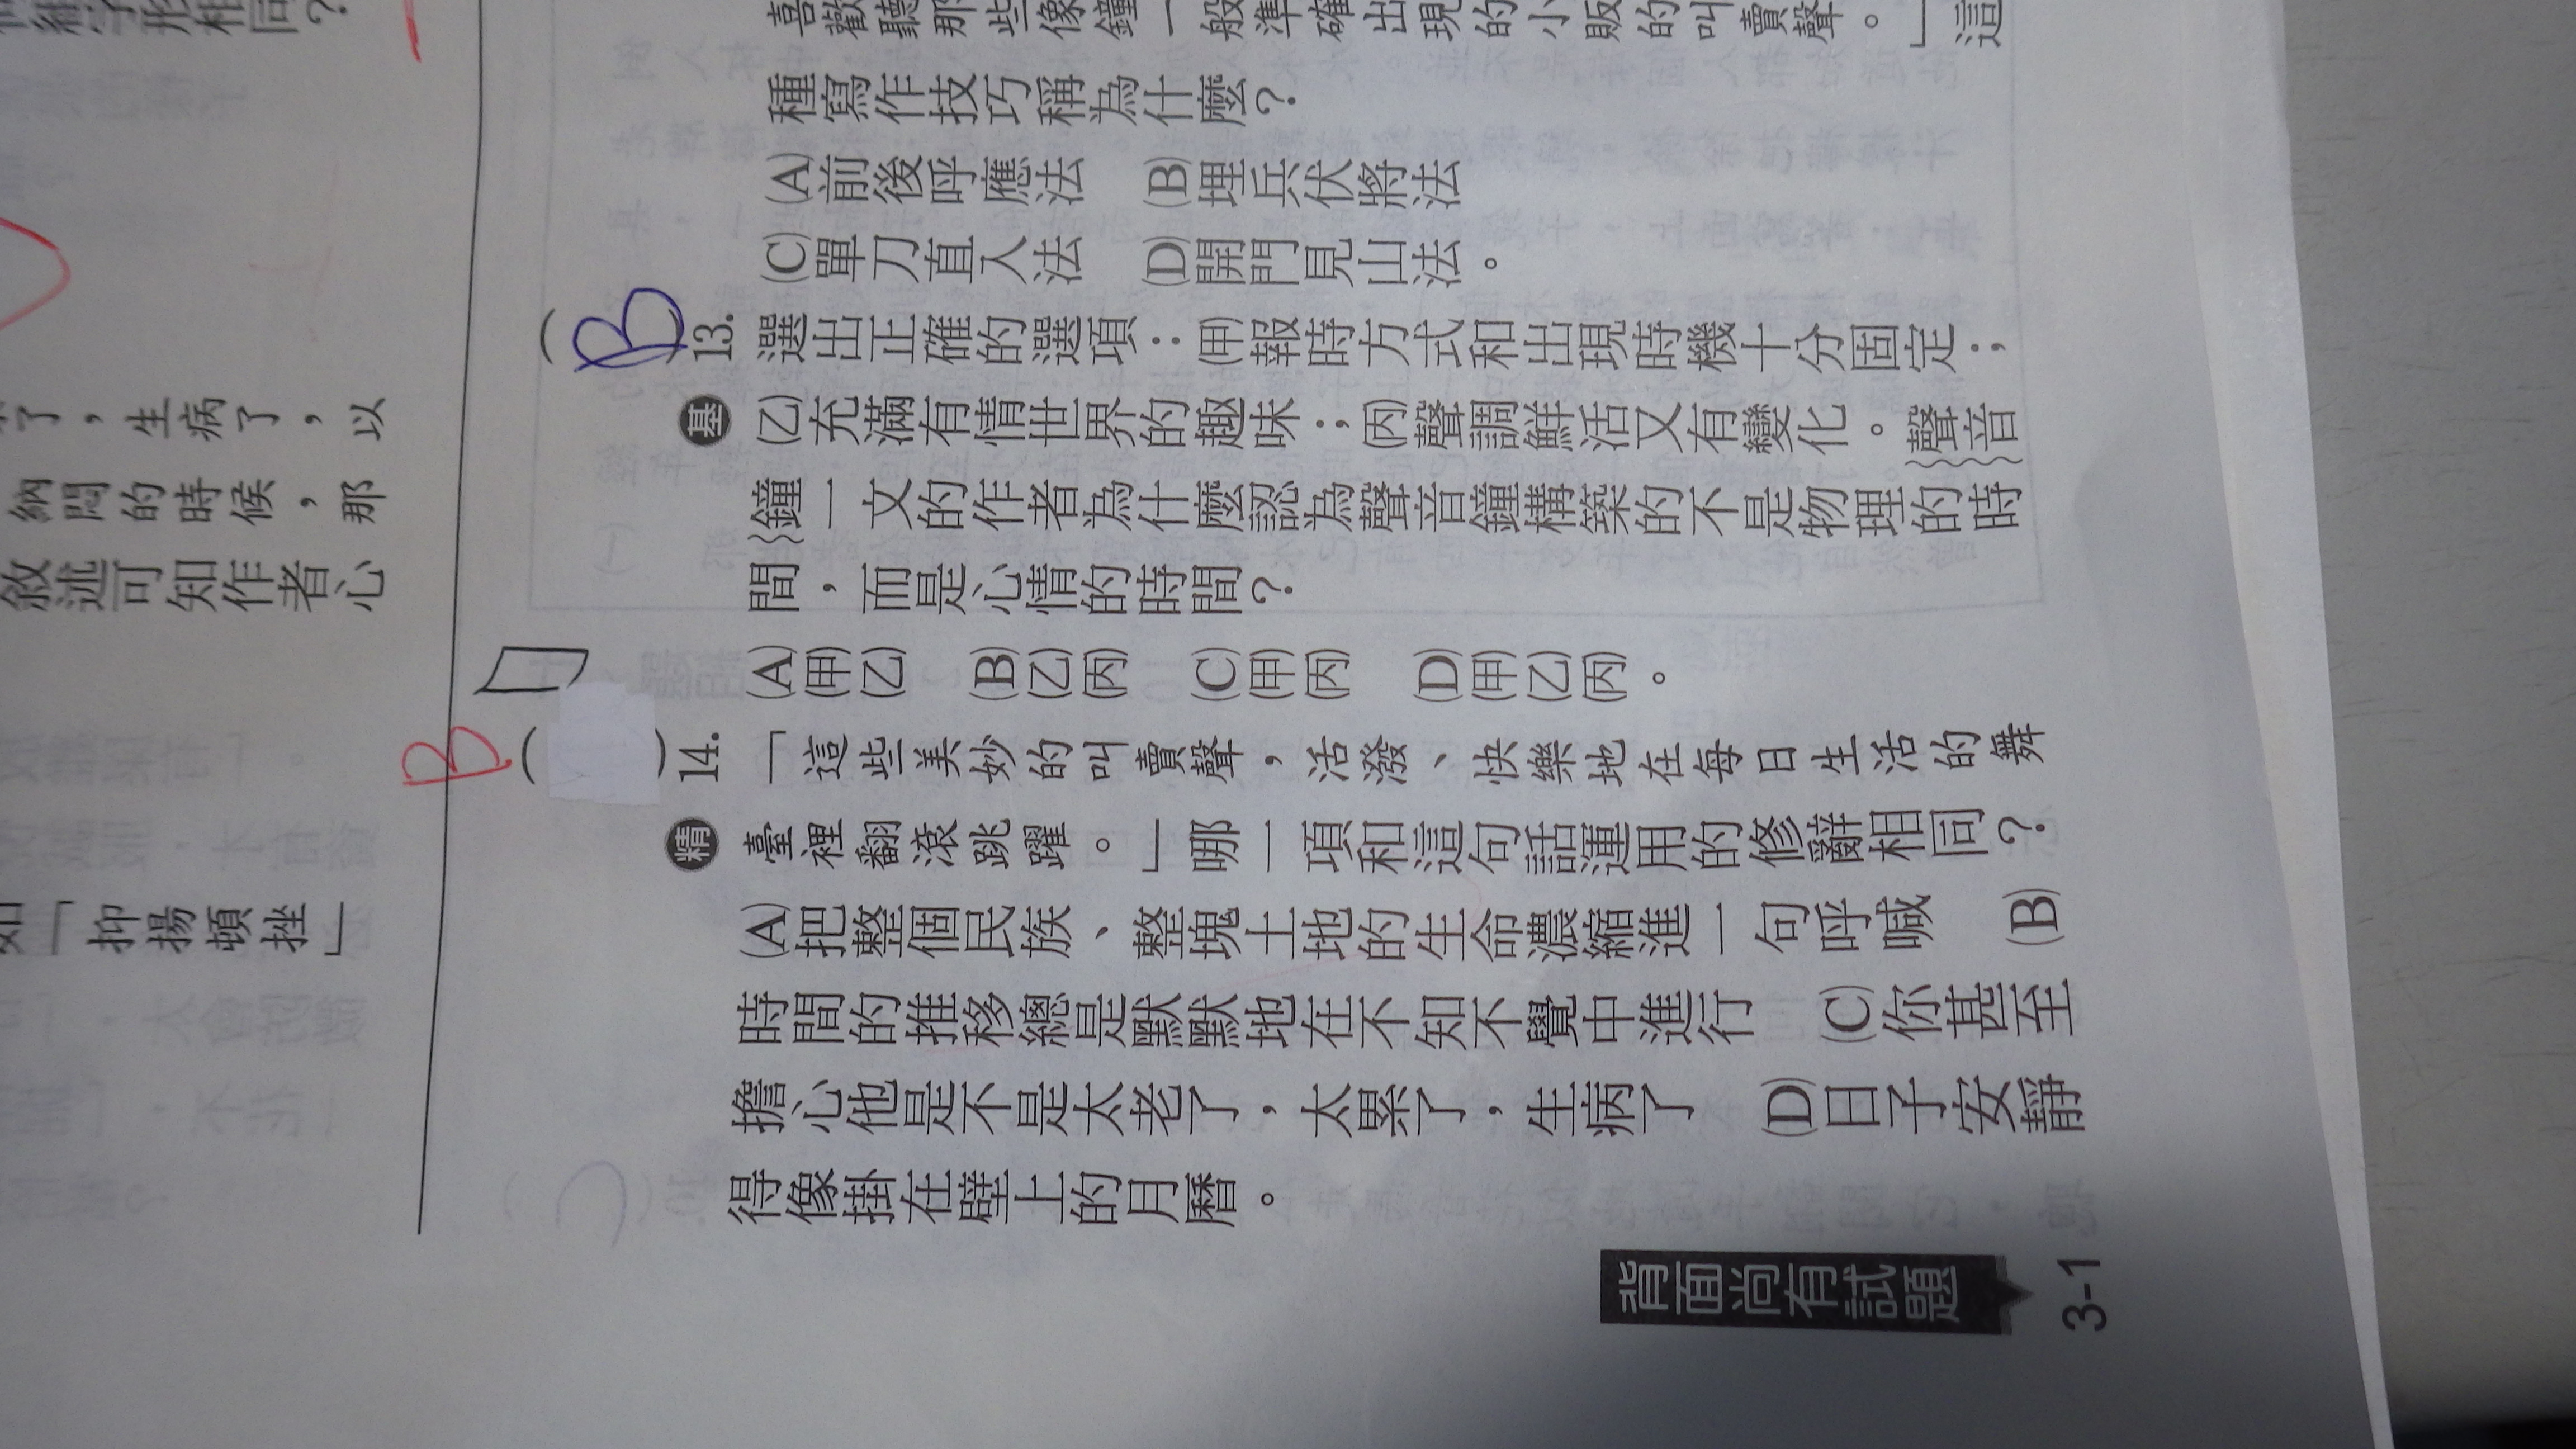 喜歡聽那些像鐘一般準確出現的小販的叫賣聲。」這
種寫作技巧稱為什麼？
(A)前後呼應法 (B)埋兵伏將法
(C)單刀直入法 (D)開門見山法。
(B)13.選出正確的選項：(甲)報時方式和出現時機十分固定；
基 (乙)充滿有情世界的趣味；(丙)聲調鮮活又有變化。聲音
鐘一文的作者為什麼認為聲音鐘構築的不是物理的時
間，而是心情的時間？
(A)(甲)(乙) (B)(乙)(丙) (C)(甲)(丙) (D)(甲)(乙)(丙)。
B ( )14.「這些美妙的叫賣聲，活潑、快樂地在每日生活的舞
精 臺裡翻滾跳躍。」哪一項和這句話運用的修辭相同？
(A)把整個民族、整塊土地的生命濃縮進一句呼喊 (B)
時間的推移總是默默地在不知不覺中進行 (C)你甚至
擔心他是不是太老了，太累了，生病了 (D)日子安靜
得像掛在壁上的月曆。
背面尚有試題
3-1
了，生病了，以
納悶的時候，那
敘述可知作者心
如「抑揚頓挫」